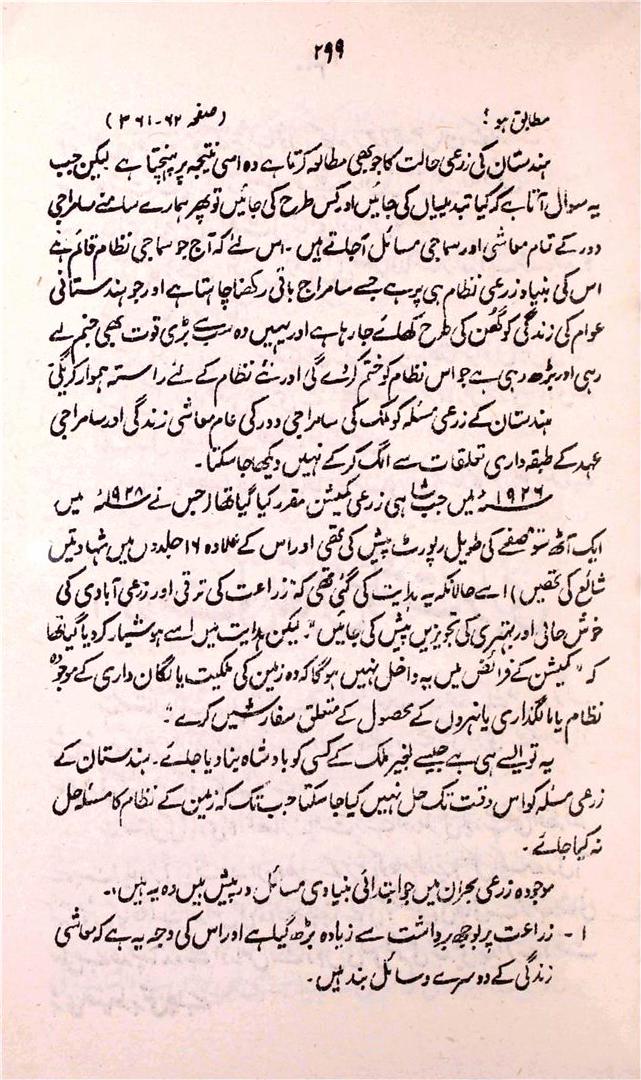 ۲۹۹
مطابق ہو؛ (صفحہ ۶۲-۳۶۱)
ہندستان کی زرعی حالت کا جو بھی مطالعہ کرتا ہے وہ اسی نتیجہ پر پہنچتا ہے لیکن جب
یہ سوال آتا ہے کہ کیا تبدیلیاں کی جائیں اور کس طرح کی جائیں تو پھر ہمارے سامنے سامراجی
دور کے تمام معاشی اور سماجی مسائل آجاتے ہیں ۔ اس لئے کہ آج جو سماجی نظام قائم ہے
اس کی بنیاد زرعی نظام ہی پر ہے جسے سامراج باقی رکھنا چاہتا ہے اور جو ہندستانی
عوام کی زندگی کو گھن کی طرح کھائے جا رہا ہے اور یہیں وہ سب سے بڑی قوت بھی جنم لے
رہی اور بڑھ رہی ہے جو اس نظام کو ختم کر دے گی اور نئے نظام کے لئے راستہ ہموار کریگی
ہندستان کے زرعی مسئلہ کو ملک کی سامراجی دور کی عام معاشی زندگی اور سامراجی
عہد کے طبقہ داری تعلقات سے الگ کر کے نہیں دیکھا جا سکتا ۔
۱۹۲۶ء میں جب شاہی زرعی کمیشن مقرر کیا گیا تھا (جس نے ۱۹۲۸ء میں
ایک آٹھ سو صفحے کی طویل رپورٹ پیش کی تھی اور اس کے علاوہ ۱۶ جلدوں میں شہادتیں
شائع کی تھیں) اسے حالانکہ یہ ہدایت کی گئی تھی کہ "زراعت کی ترقی اور زرعی آبادی کی
خوش حالی اور بہتری کی تجویزیں پیش کی جائیں"۔ لیکن ہدایت میں اسے ہوشیار کر دیا گیا تھا
کہ "کمیشن کے فرائض میں یہ داخل نہیں ہوگا کہ وہ زمین کی ملکیت یا لگان داری کے موجودہ
نظام یا مالگذاری یا نہروں کے محصول کے متعلق سفارشیں کرے"۔
یہ تو ایسے ہی ہے جیسے بغیر ملک کے کسی کو بادشاہ بنا دیا جائے ۔ ہندستان کے
زرعی مسئلہ کو اس وقت تک حل نہیں کیا جا سکتا جب تک کہ زمین کے نظام کا مسئلہ حل
نہ کیا جائے ۔
موجودہ زرعی بحران میں جو ابتدائی بنیادی مسائل درپیش ہیں وہ یہ ہیں:۔
۱ - زراعت پر بوجھ برداشت سے زیادہ بڑھ گیا ہے اور اس کی وجہ یہ ہے کہ معاشی
زندگی کے دوسرے وسائل بند ہیں ۔